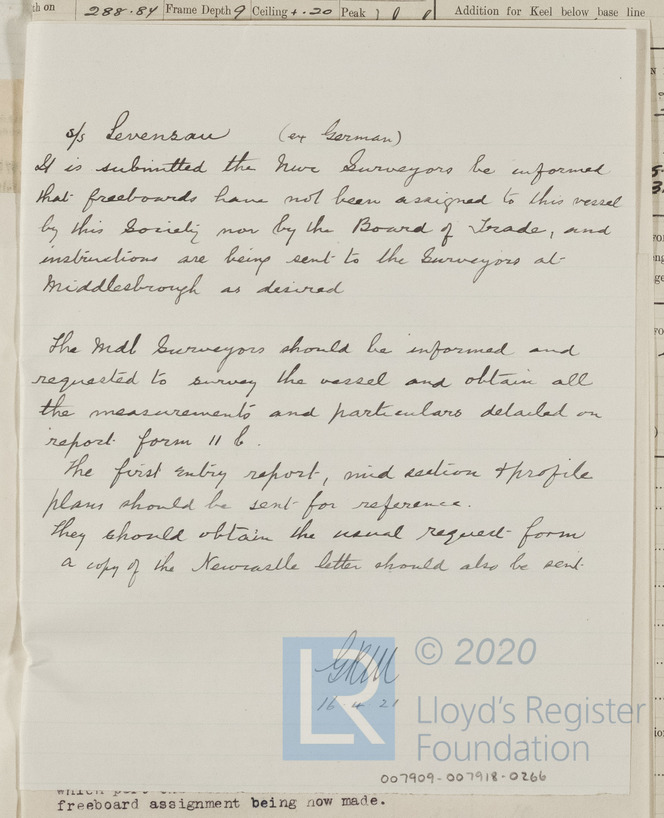 th on 288.84 Frame Depth 9 Ceiling +.20 Peak Addition for Keel below base line
s/s Levensau (ex German)
It is submitted the Nwc Surveyors be informed
that freeboards have not been assigned to this vessel
by this Society nor by the Board of Trade, and
instructions are being sent to the Surveyors at
Middlesbrough as desired
The Mdl Surveyors should be informed and
requested to survey the vessel and obtain all
the measurements and particulars detailed on
report form 11 b.
The first entry report, mid section & profile
plans should be sent for reference.
They should obtain the usual request form
a copy of the Newcastle letter should also be sent
16 4 21
LR
© 2020
Lloyd's Register
Foundation
007909-007918-0266
freeboard assignment being now made.